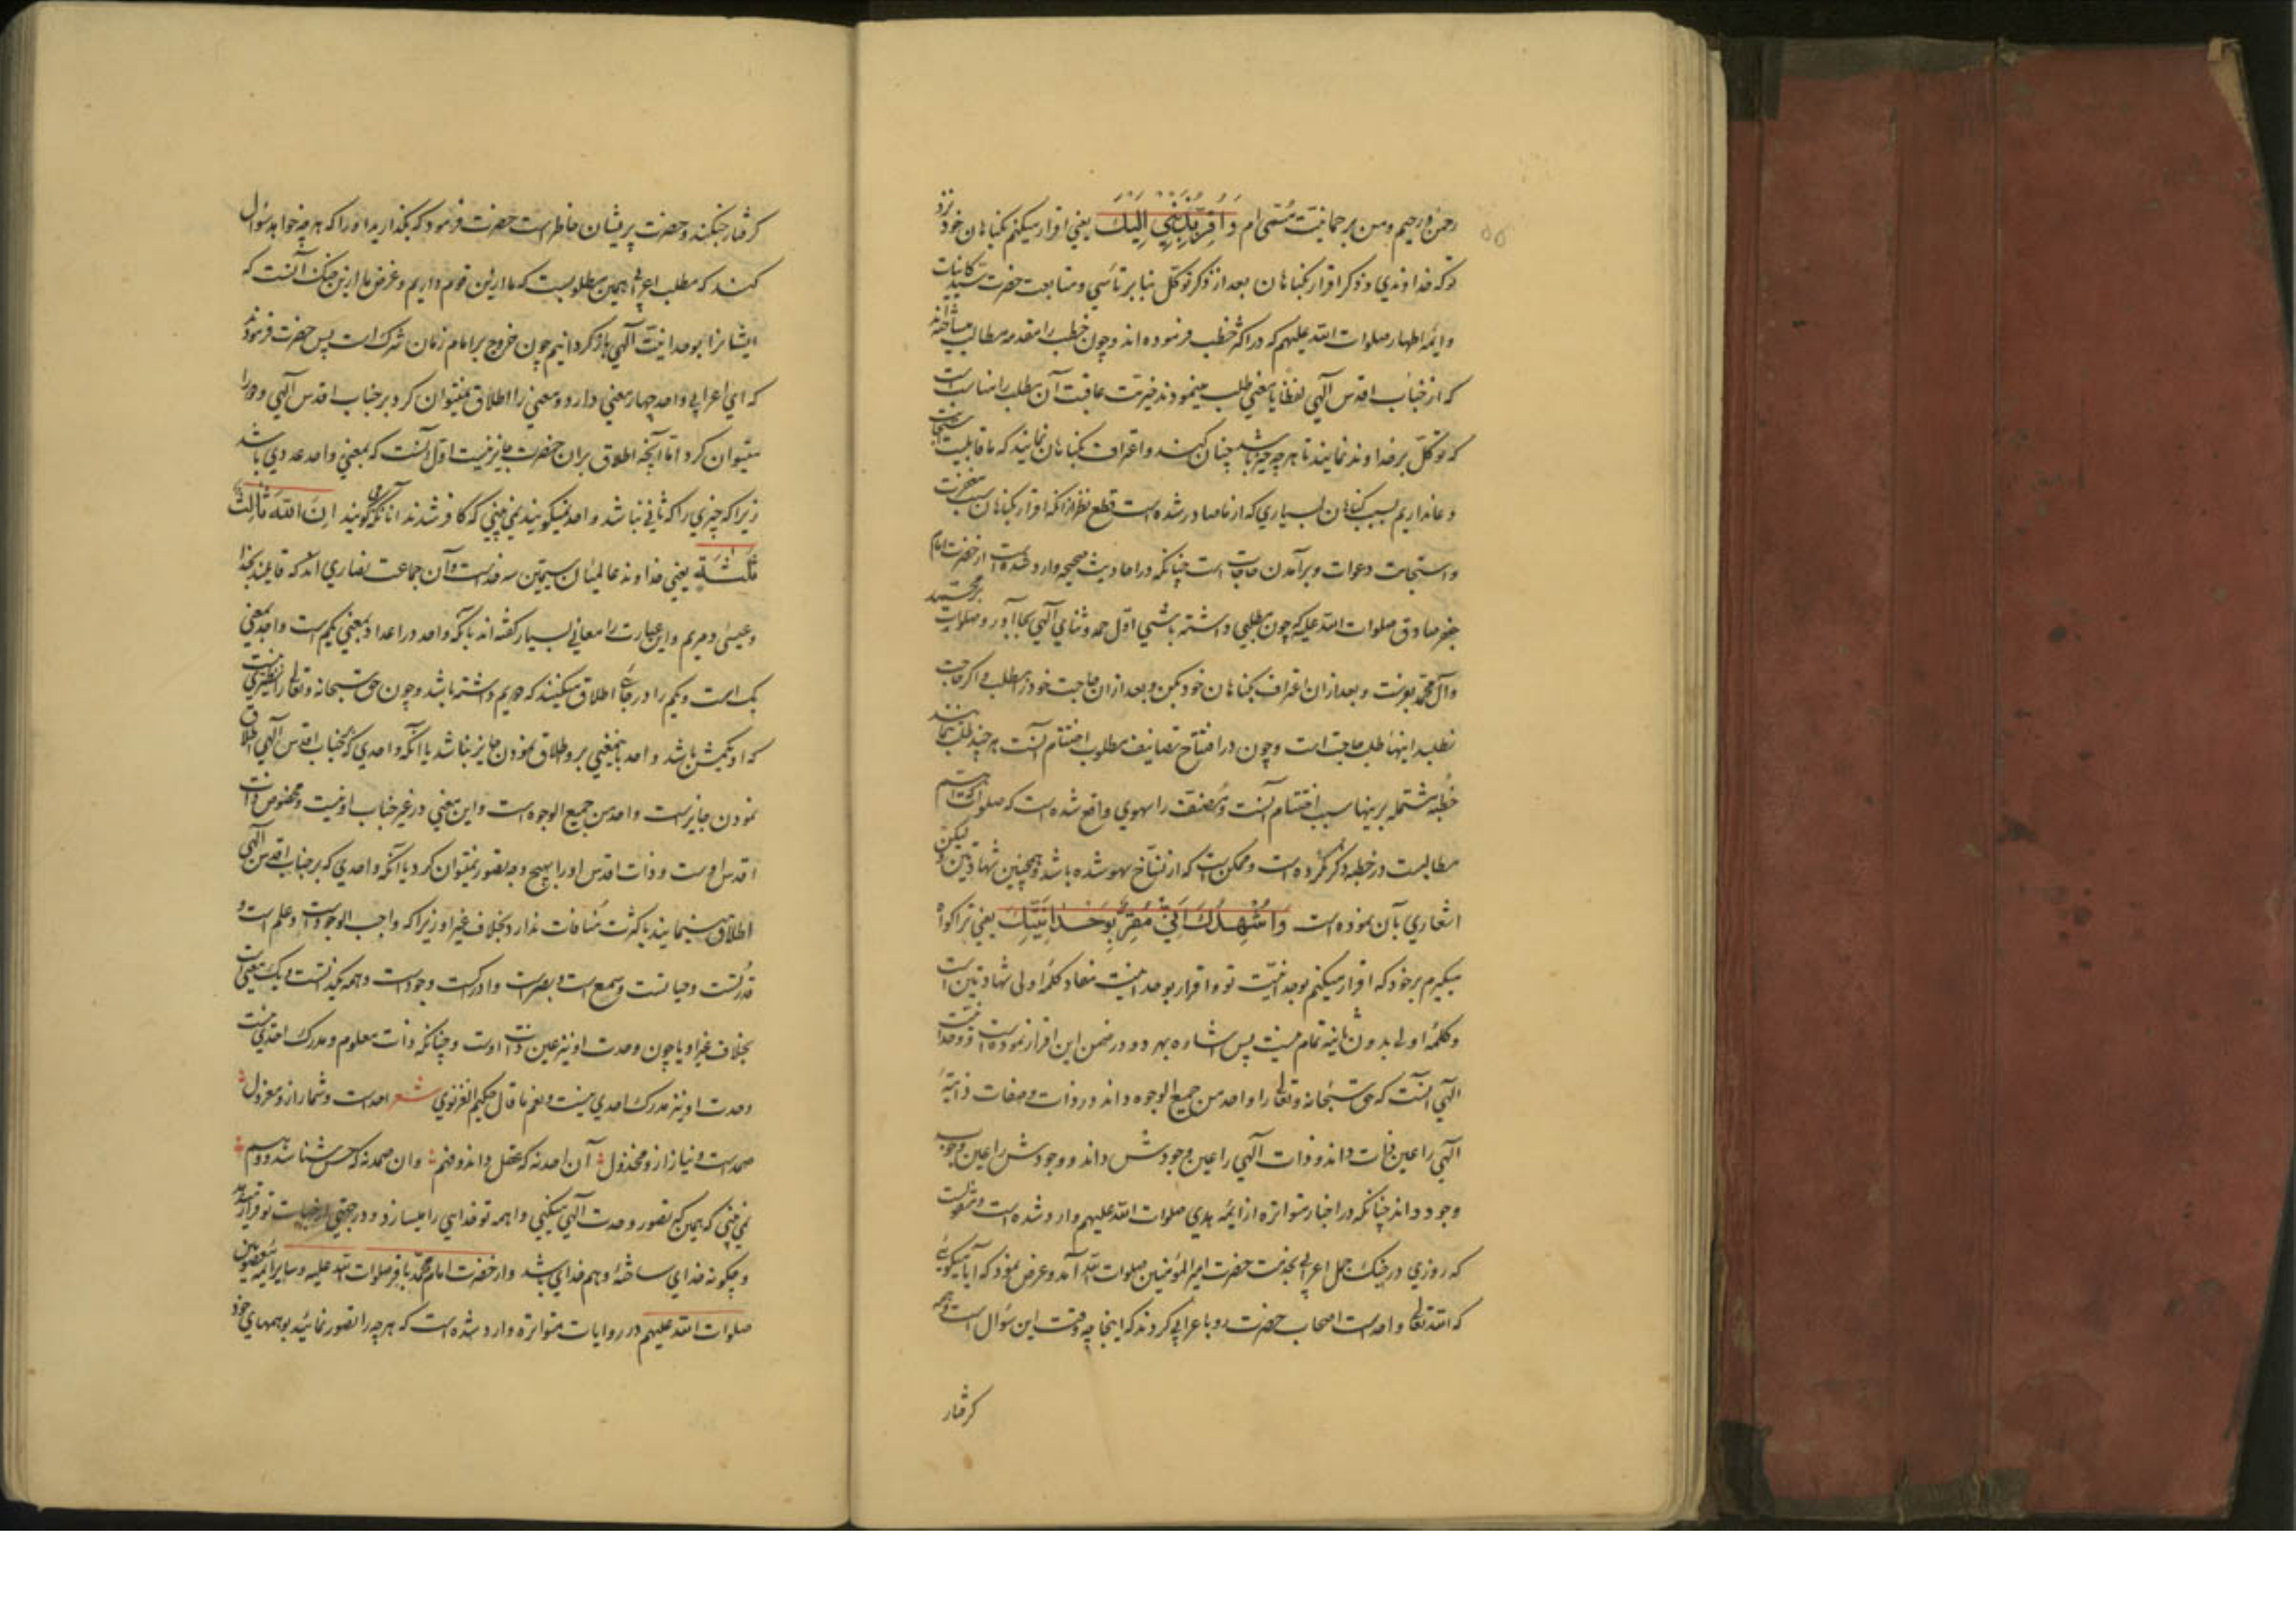 رحمن و رحیم و من برحمانیت مسمی ام و أقر بذنبي إلیک یعنی اقرار میکنم بکناهان خود نزد
تو که خداوندی و ذکر اقرار بکناهان بعد از ذکر توکل بنا بر تأسی و متابعت حضرت سید کاینات
و ائمه اطهار صلوات الله علیهم که در اکثر خطب فرموده اند و چون خطب را مقدمه مطالب میساخته اند
که از جناب اقدس الهی لفظا یا معنی طلب مینمودند خیریت عاقبت آن مطلب را مناسب است
که توکل بر خداوند نمایند تا هر چه خیر باشد چنان کند و اعتراف بکناهان نمایند که ما قابلیت استجابت
دعا نداریم بسبب کناهان بسیاری که از ما صادر شده است قطع نظر از آنکه اقرار بکناهان سبب مغفرت
و استجابت دعوات و برآمدن حاجات است چنانکه در احادیث صحیحه وارد شده است از حضرت امام
جعفر صادق صلوات الله علیه که چون مطلبی داشته باشی اول حمد و ثنای الهی بجا آور و صلوات بر محمد
و آل محمد بفرست و بعد از ان اعتراف بکناهان خود بکن و بعد از ان حاجت خود را بطلب و اکر حاجت
نطلبد اینها طلب حاجت است و چون در افتتاح تصانیف مطلوب اختتام آنست هر چند طلب نمانند
خطبه مشتمله بر اینها سبب اختتام آنست و مصنف را سهوی واقع شده است که صلوات که اهم
مطالبست در خطبه ذکر نکرده است و ممکن است که از نساخ سهو شده باشد و همچنین شهادتین و لیکن
اشعاری بآن نموده است و أشهدک أني مقر بوحدانیتک یعنی ترا کواه
میکیرم بر خود که اقرار میکنم بوحدانیت تو و اقرار بوحدانیت مفاد کلمه اولی شهادتین است
و کلمه اولی بدون ثانیه تمام نیست پس اشاره بهر دو در ضمن این اقرار نموده است و وحدانیت
الهی آنست که حق سبحانه و تعالی را واحد من جمیع الوجوه داند در ذات و صفات ذاتیهٔ
الهی را عین ذات داند و ذات الهی را عین وجودش داند و وجودش را عین وجوب
وجود داند چنانکه در اخبار متواتره از ایمه هدی صلوات الله علیهم وارد شده است و منقولست
که روزی در جنک جمل اعرابی بخدمت حضرت امیر المؤمنین صلوات الله آمد و عرض نمود که آیا میکویی
که الله تعالی واحد است اصحاب حضرت رو باعرابی کردند که اینجا چه وقت این سؤال است و همه
کرفتار
کرفتار جنکند و حضرت پریشان خاطر است حضرت فرمود که بگذارید او را که هر چه خواهد سؤال
کند که مطلب اعرابی همین مطلوبست که ما ازین قوم داریم و غرض ما ازین جنک آنست که
ایشانرا بوحدانیت الهی باز کردانیم چون خروج بر امام زمان شرک است پس حضرت فرمودند
که ای اعرابی واحد چهار معنی دارد دو معنی را اطلاق نمیتوان کرد بر جناب اقدس الهی و دو را
میتوان کرد اما آنچه اطلاق بر ان حضرت جایز نیست اول آنست که بمعنی واحد عددی باشد
زیرا که چیزی را که ثانی نباشد واحد نمیکویند نمی بینی که کافر شدند آنانکه می کویند إن الله ثالث
ثلثة یعنی خداوند عالمیان سیمین سه خداست و آن جماعت نصاری اند که قایلند بخدا
و عیسی و مریم و این عبارت را معانی بسیار کفته اند یا آنکه واحد در اعداد بمعنی یکم است و احد بمعنی
یک است و یکم را در جائی اطلاق میکنند که دویم داشته باشد و چون حق سبحانه و تعالی را نظیری نیست
که او یکمش باشد واحد باینمعنی برو اطلاق نمودن جایز نباشد یا آنکه واحدی که بر جناب اقدس الهی اطلاق
نمودن جایز است واحد من جمیع الوجوه است و این معنی در غیر جناب او نیست و مخصوص ذات
اقدس اوست و ذات اقدس او را بهیچ وجه تصور نمیتوان کرد یا آنکه واحدی که بر جناب اقدس الهی
اطلاق مینمایند با کثرت منافات ندارد بخلاف غیر او زیرا که واجب الوجود است و علم است و
قدرتست و حیاتست و سمع است و بصر است و ادراکست و وجود است و همه یک ذاتست و یک معنی است
بخلاف غیر او یا چون وحدت او نیز عین ذات اوست و چنانکه ذات معلوم و مدرک احدی نیست
وحدت او نیز مدرک احدی نیست و نعم ما قال حکیم الغزنوی شعر احد است و شمار ازو معزول
صمد است و نیاز ازو مخذول آن احد نه که عقل داند و فهم وان صمد نه که حس شناسد و وهم
نمی بینی که همین که تصور وحدت الهی میکنی واهمه تو خدایی را میسازد و در جهتی از جهات تو قرار میدهد
و چکونه خدای ساختهٔ وهم خدای باشد و از حضرت امام محمد باقر صلوات الله علیه و سایر ایمه معصومین
صلوات الله علیهم در روایات متواتره وارد شده است که هر چه را تصور نمائید بوهمهای خود